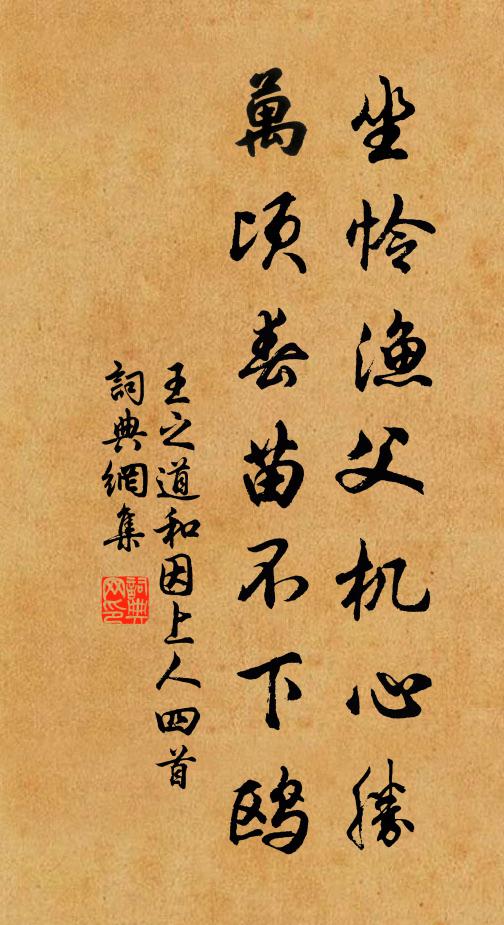 坐怜漁父机心勝
萬頃春苗不下鸥
王之道和因上人四首
詞典網集
詞典网印